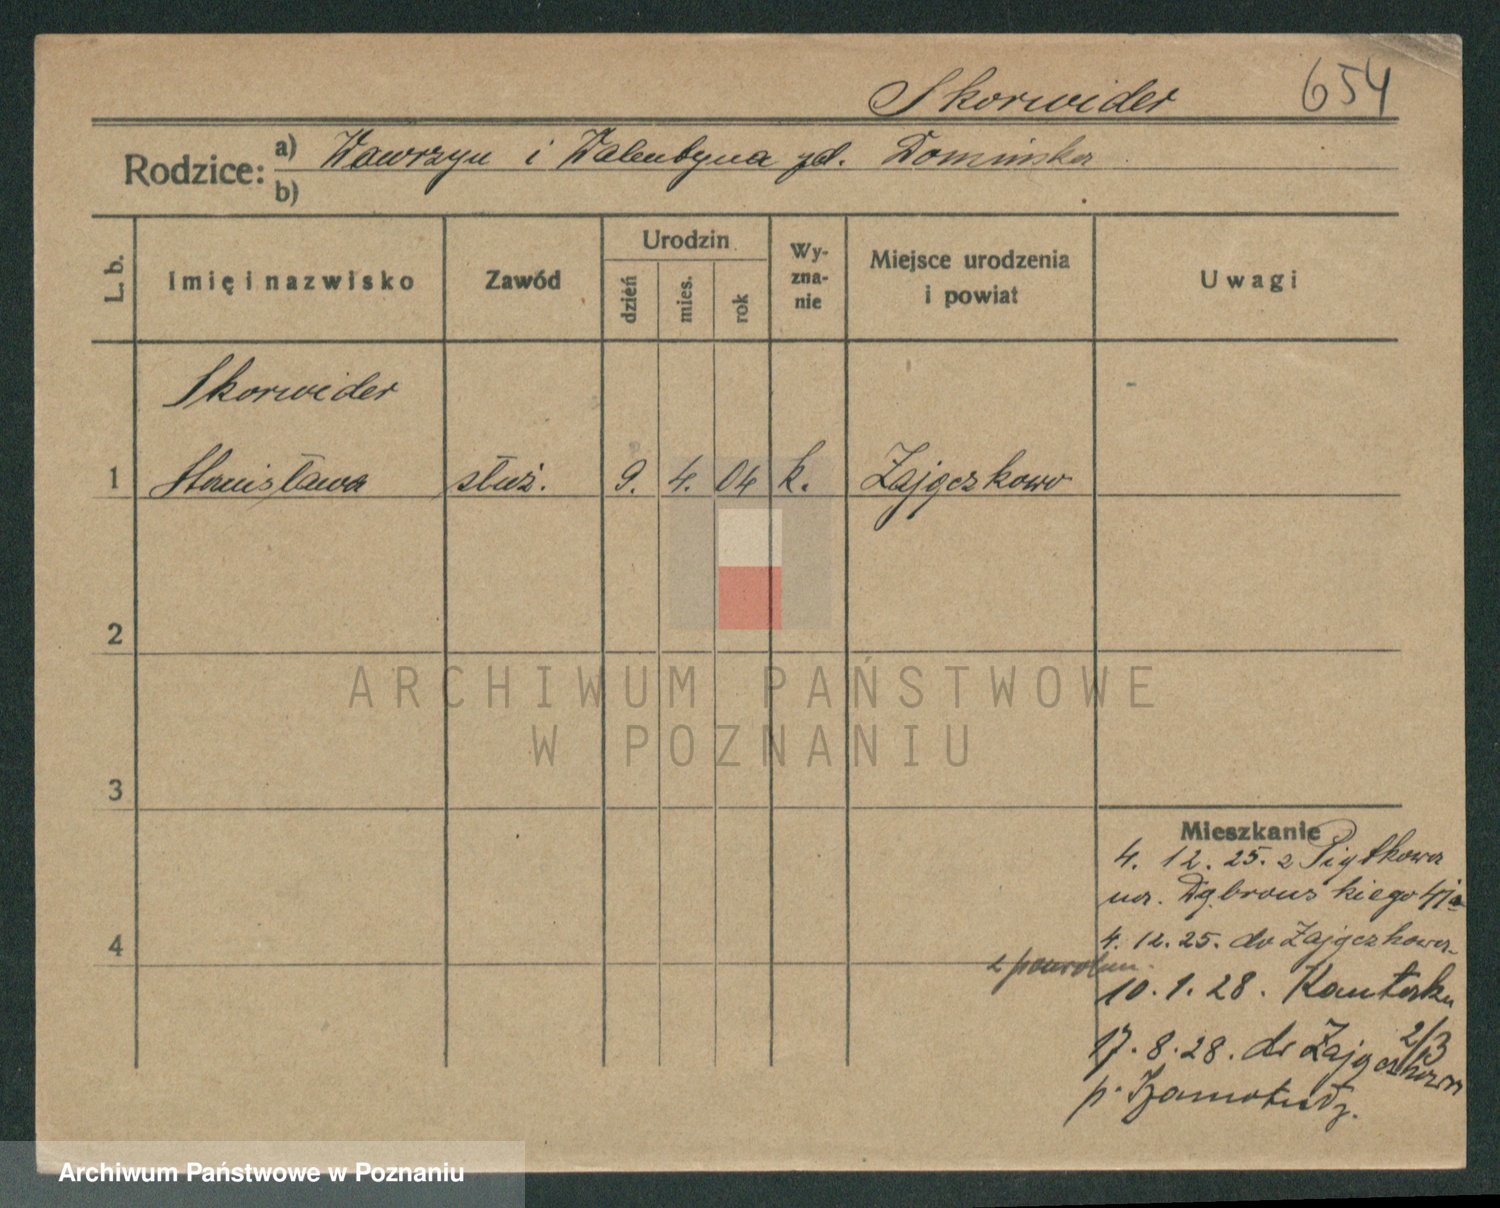 Skorwider 654
Rodzice: a) Wawrzyn i Walentyna zd. Domińska
b)
L. b. Imię i nazwisko Zawód Urodzin dzień mies. rok Wyznanie Miejsce urodzenia i powiat Uwagi
Skorwider
1 Stanisława służ. 9. 4. 04 k. Zajączkowo
2
ARCHIWUM PAŃSTWOWE
W POZNANIU
3
Mieszkanie
4. 12. 25. z Piątkowa
na. Dąbrowskiego 41
4
4. 12. 25. do Zajączkowa
z powrotem
10. 1. 28. Kantaka
2/3
17. 8. 28. do Zajączkowa
p. Szamotuły.
Archiwum Państwowe w Poznaniu